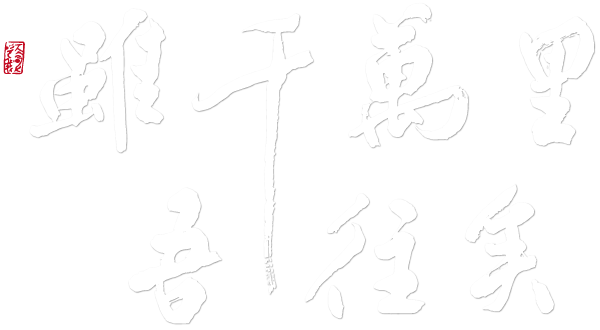 雖千萬里
吾往矣